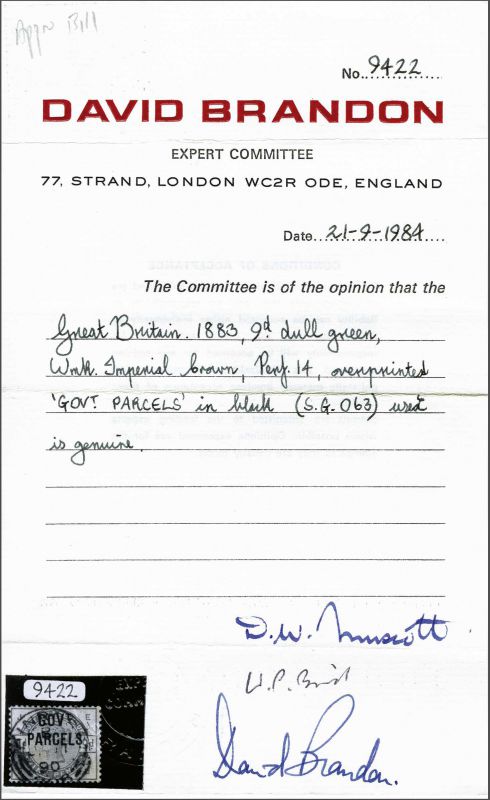 Appn Bill
No. 9422
DAVID BRANDON
EXPERT COMMITTEE
77, STRAND, LONDON WC2R ODE, ENGLAND
Date 21-9-1984
The Committee is of the opinion that the
Great Britain. 1883, 9d dull green,
Wmk. Imperial Crown, Perf. 14, overprinted
'GOVT PARCELS' in black (S.G. O63) used
is genuine.
D.W.
David Brandon.
9422
GOVT
PARCELS
90